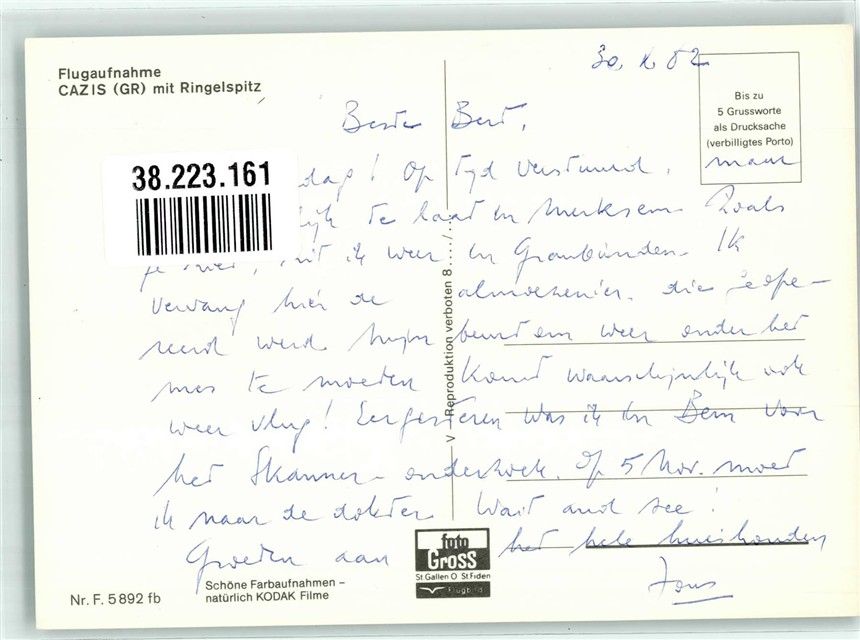 Flugaufnahme
CAZIS (GR) mit Ringelspitz
30. X. 82
Bis zu
5 Grussworte
als Drucksache
(verbilligtes Porto)
Beste Bert,
38.223.161
dag! Op tyd verstuurd, maar
lijk te laat in Merksem. Zoals
je weet, zit ik weer in Graubünden. Ik
vervang hier de almoezenier, die geope-
reerd werd. Mijn beurt om weer onder het
mes te moeten komt waarschijnlijk ook
weer vlug! Eergisteren was ik in Bern voor
het Skanner-onderzoek. Op 5 Nov. moet
ik naar de dokter. Wait and see!
Groeten aan het hele huishouden
Reproduktion verboten 8..../...
V
foto
GROSS
St Gallen O St Fiden
Flugbild
Schöne Farbaufnahmen –
natürlich KODAK Filme
Nr. F. 5892 fb